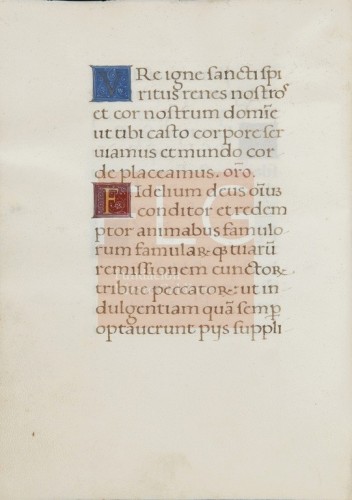 VRe igne sancti spi
ritus renes nostros
et cor nostrum domie
ut tibi casto corpore ser
uiamus et mundo cor
de placeamus. oro.
FIdelium deus oium
conditor et redem
ptor animabus famulo
rum famular. qz tuarū
remissionem cunctor.
tribue peccator: ut in
dulgentiam quā semp
optauerunt pijs suppli
FLG